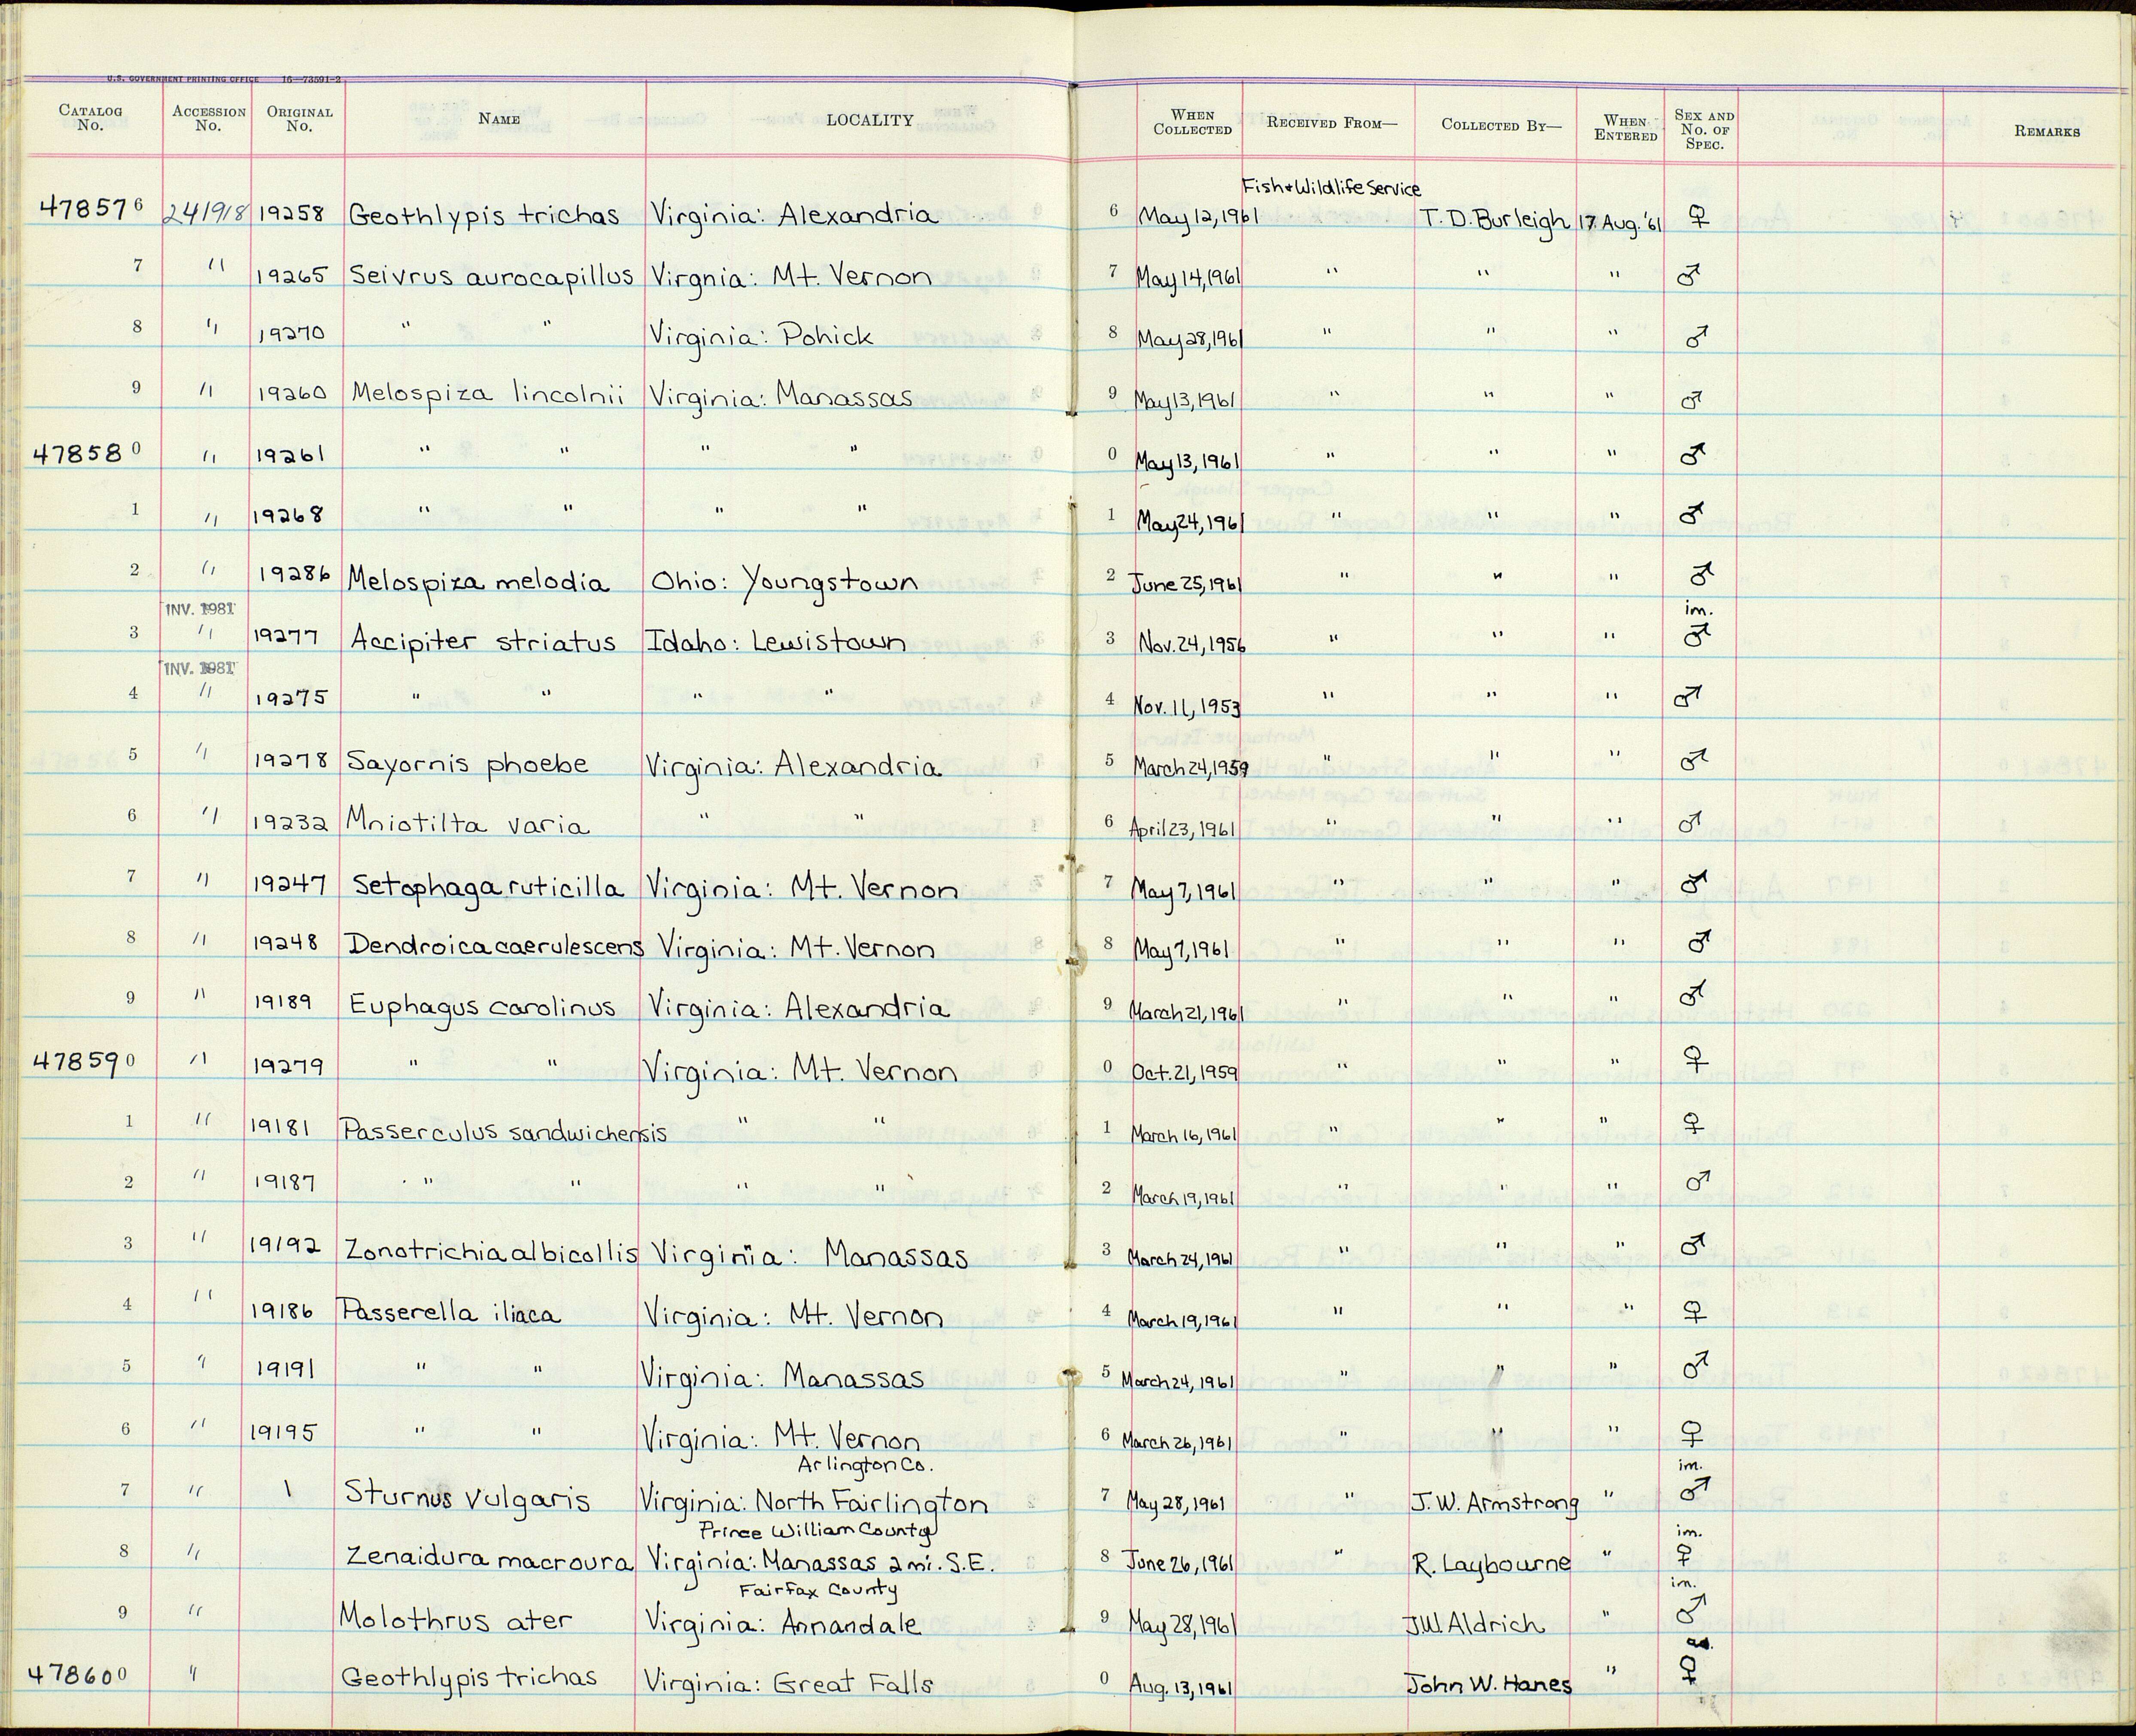 U.S. GOVERNMENT PRINTING OFFICE 16—73591-2
CATALOG No. ACCESSION No. ORIGINAL No. NAME LOCALITY WHEN COLLECTED RECEIVED FROM— COLLECTED BY— WHEN ENTERED SEX AND No. OF SPEC. REMARKS
Fish & Wildlife Service
478576 241918 19258 Geothlypis trichas Virginia: Alexandria 6 May 12, 1961 T. D. Burleigh 17 Aug. '61 ♀
7 " 19265 Seivrus aurocapillus Virgnia: Mt. Vernon 7 May 14, 1961 " " " ♂
8 " 19270 " " Virginia: Pohick 8 May 28, 1961 " " " ♂
9 " 19260 Melospiza lincolnii Virginia: Manassas 9 May 13, 1961 " " " ♂
478580 " 19261 " " " " 0 May 13, 1961 " " " ♂
1 " 19268 " " " " 1 May 24, 1961 " " " ♂
2 " 19286 Melospiza melodia Ohio: Youngstown 2 June 25, 1961 " " " ♂
INV. 1981 im.
3 " 19277 Accipiter striatus Idaho: Lewistown 3 Nov. 24, 1956 " " " ♂
INV. 1981
4 " 19275 " " " " 4 Nov. 11, 1953 " " " ♂
5 " 19278 Sayornis phoebe Virginia: Alexandria 5 March 24, 1959 " " " ♂
6 " 19232 Mniotilta varia " " 6 April 23, 1961 " " " ♂
7 " 19247 Setophaga ruticilla Virginia: Mt. Vernon 7 May 7, 1961 " " " ♂
8 " 19248 Dendroica caerulescens Virginia: Mt. Vernon 8 May 7, 1961 " " " ♂
9 " 19189 Euphagus carolinus Virginia: Alexandria 9 March 21, 1961 " " " ♂
478590 " 19279 " " Virginia: Mt. Vernon 0 Oct. 21, 1959 " " " ♀
1 " 19181 Passerculus sandwichensis " " 1 March 16, 1961 " " " ♀
2 " 19187 " " " " 2 March 19, 1961 " " " ♂
3 " 19192 Zonotrichia albicollis Virginia: Manassas 3 March 24, 1961 " " " ♂
4 " 19186 Passerella iliaca Virginia: Mt. Vernon 4 March 19, 1961 " " " ♀
5 " 19191 " " Virginia: Manassas 5 March 24, 1961 " " " ♂
6 " 19195 " " Virginia: Mt. Vernon 6 March 26, 1961 " " " ♀
Arlington Co. im.
7 " 1 Sturnus vulgaris Virginia: North Fairlington 7 May 28, 1961 " J. W. Armstrong " ♂
Prince William County im.
8 " Zenaidura macroura Virginia: Manassas 2 mi. S.E. 8 June 26, 1961 " R. Laybourne " ♀
Fairfax County im.
9 " Molothrus ater Virginia: Annandale 9 May 28, 1961 J.W. Aldrich " ♂
ad.
478600 " Geothlypis trichas Virginia: Great Falls 0 Aug. 13, 1961 John W. Hanes " ♀